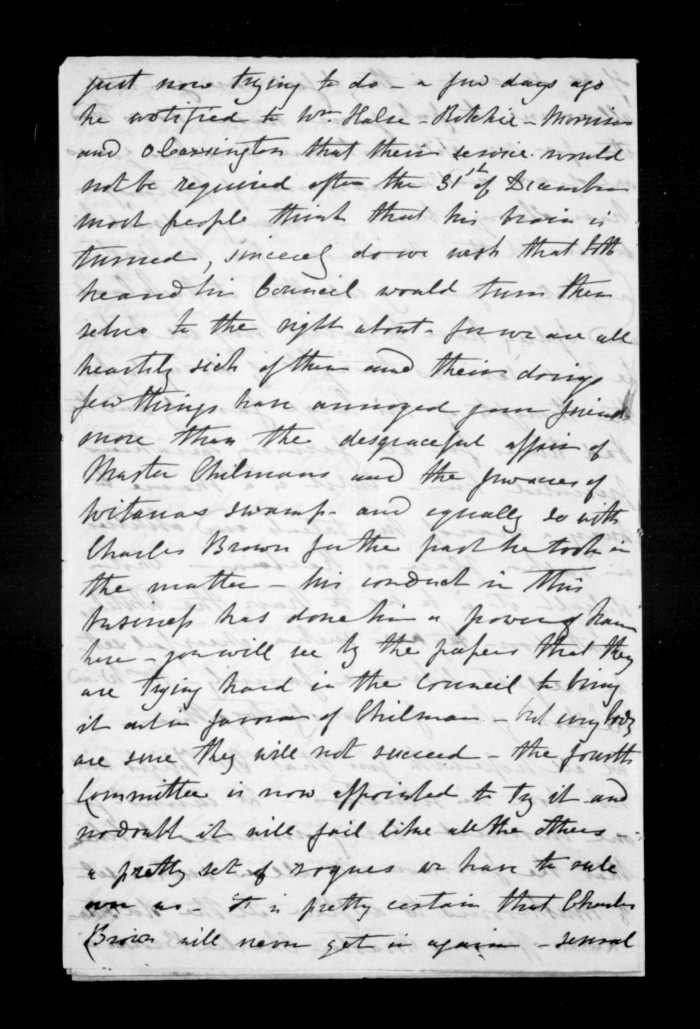 just now trying to do - a few days ago
he notified to Wm. Halse - Ritchie - Morris
and O Carrington that their service would
not be required after the 31st of December
most people think that his brain is
turned, sincerely do we wish that both
he and his Council would turn them
selves to the right about - for we are all
heartily sick of them and their doings
few things have annoyed your friends
more than the desgraceful affair of
Master Chilmans and the
swamp - and equally so with
Charles Brown for the part he took in
the matter - his conduct in this
business has done him a power of harm
here - you will see by the papers that they
are trying hard in the Council to bring
it out in favour of Chilman - but every body
are sure they will not succeed - the fourth
Committee is now appointed to try it and
no doubt it will fail like all the others -
a pretty set of rogues we have to rule
over us - it is pretty certain that Charles
Brown will never get in again - several